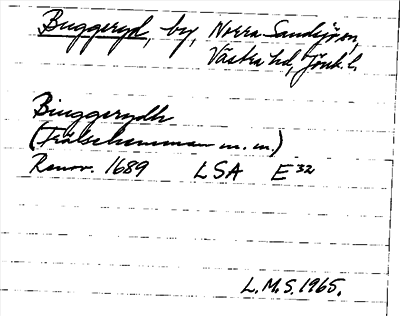 Buggeryd, by, Norra Sandsjö sn,
Västra hd, Jönk. l.
Binggerydh
(Frälsehemman m. m.)
Renov. 1689 LSA E 32
L.M.S. 1965.